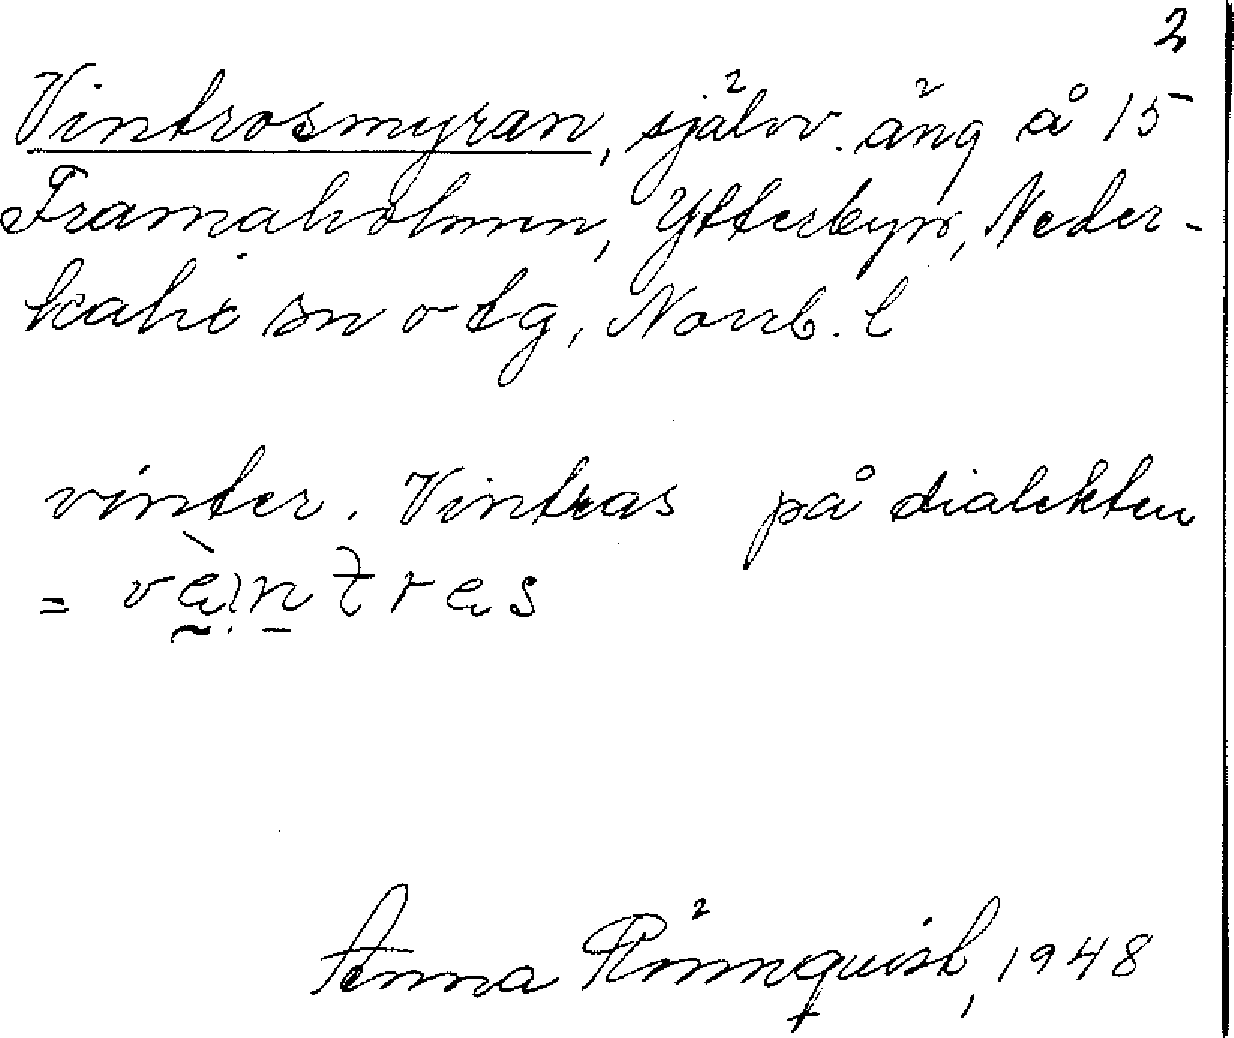 2
Vintrosmyran, självv. äng å 15
Framaholmen, Ytterbyn, Neder-
kalix sn o tg, Norrb. l
vinter. Vintras på dialekten
=
Anna Rönnquist, 1948